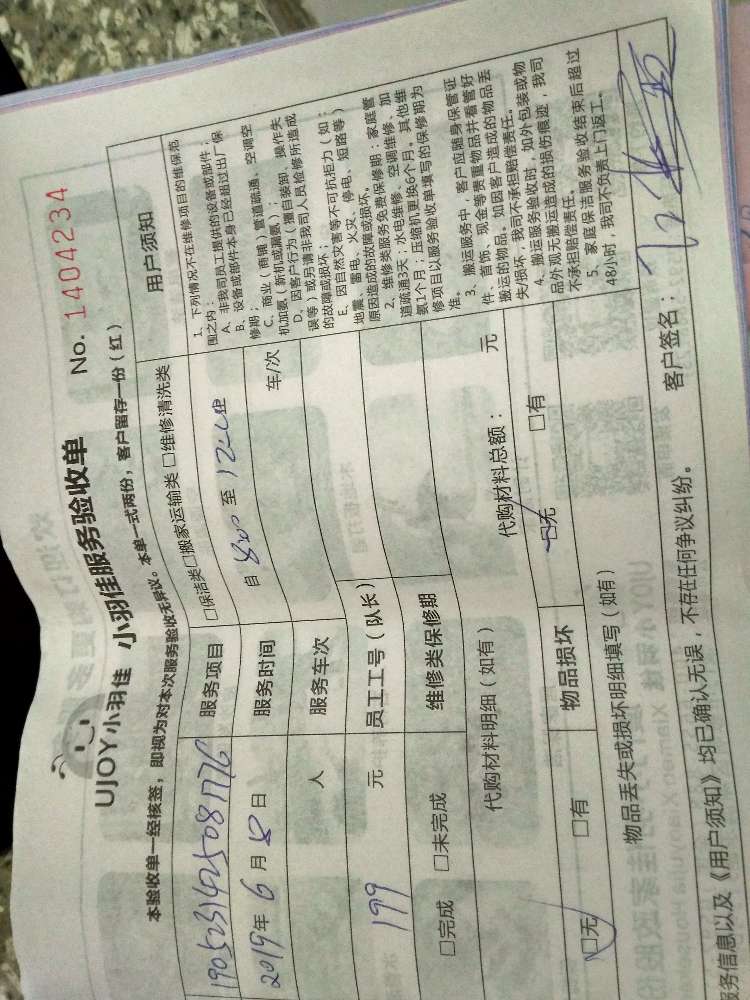 UJOY小羽佳 小羽佳服务验收单 No. 1404234
本验收单一经核签，即视为对本次服务验收无异议。本单一式两份，客户留存一份（红）
服务项目 □保洁类□搬家运输类 □维修清洗类
2019年6月 日 服务时间 自 至
人 服务车次 车/次
199 元 员工工号（队长）
□完成 □未完成 维修类保修期
代购材料明细（如有） 代购材料总额： 元
□无 □有 物品损坏 □无 □有
物品丢失或损坏明细填写（如有）
用户须知
1、下列情况不在维修项目的维保范
围之内：
A、非我司员工提供的设备或部件；
B、设备或部件本身已经超过出厂保
修期；
C、商业（商铺，管道疏通、空调空
机加氨（新机或漏氨）；
D、因客户行为（擅自装卸、操作失
误等）或另请非我司人员检修所造成
的故障或损坏；
E、因自然灾害等不可抗拒力（如：
地震、雷电、火灾、停电、短路等）
原因造成的故障或损坏。
2、维修类服务免费保修期：家庭管
道疏通3天；水电维修、空调维修、加
氨1个月；压缩机更换6个月。其他维
修项目以服务验收单填写的保修期为
准。
3、搬运服务中，客户应随身保管证
件、首饰、现金等贵重物品并看管好
搬运的物品。如因客户造成的物品丢
失/损坏，我司不承担赔偿责任。
4、搬运服务验收时，如外包装或物
品外观无搬运造成的损伤痕迹，我司
不承担赔偿责任。
5、家庭保洁服务验收结束后超过
48小时，我司不负责上门返工。
务信息以及《用户须知》均已确认无误，不存在任何争议纠纷。 客户签名：